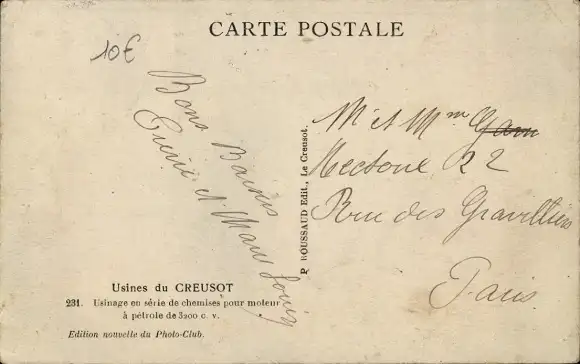 CARTE POSTALE
10€
Bons Baisers
et
M et Mm
22
Rue des Gravilliers
Paris
P ROUSSAUD Edit., Le Creusot.
Usines du CREUSOT
231. Usinage en série de chemises pour moteur
à pétrole de 3200 c. v.
Edition nouvelle du Photo-Club.